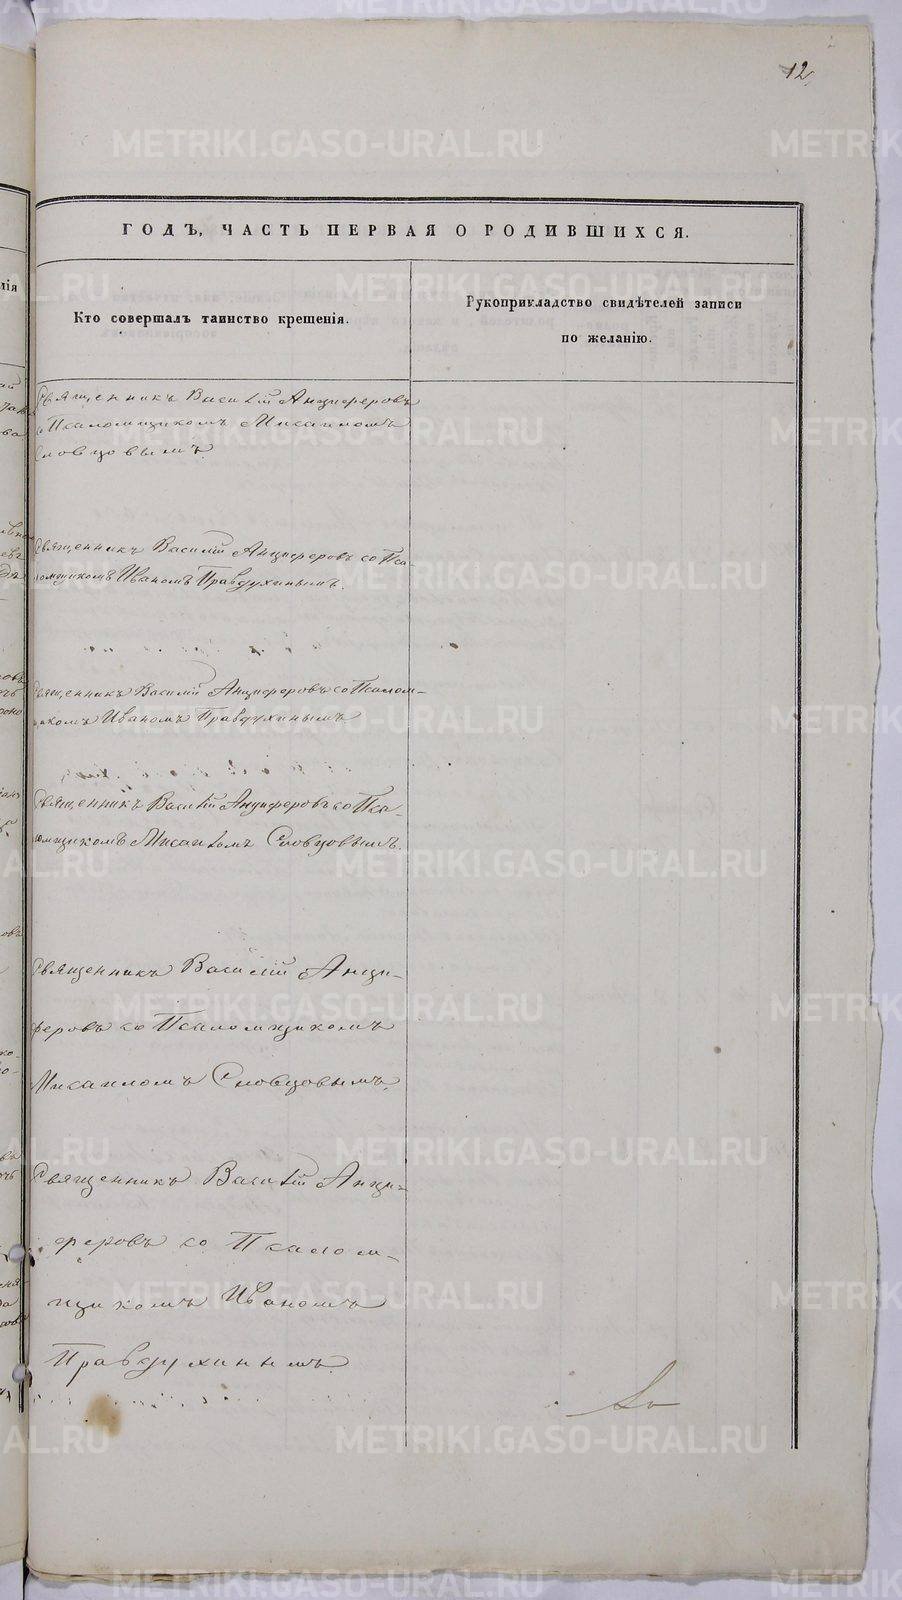 12
ГОДЪ, ЧАСТЬ ПЕРВАЯ О РОДИВШИХСЯ.
Кто совершалъ таинство крещенія.
Рукоприкладство свидѣтелей записи
по желанію.
Священникъ Василій Анциферовъ
с Псаломщикомъ Михаиломъ
Словцовымъ.
Священникъ Василій Анциферовъ со Пса-
ломщикомъ Иваномъ Правдухинымъ.
Священникъ Василій Анциферовъ со Псалом-
щикомъ Иваномъ Правдухинымъ
Священникъ Василій Анциферовъ со Пса-
ломщикомъ Михаиломъ Словцовымъ.
Священникъ Василій Анци-
феровъ со Псаломщикомъ
Михаиломъ Словцовымъ.
Священникъ Василій Анци-
феровъ со Псалом-
щикомъ Иваномъ
Правдухинымъ.
METRIKI.GASO-URAL.RU